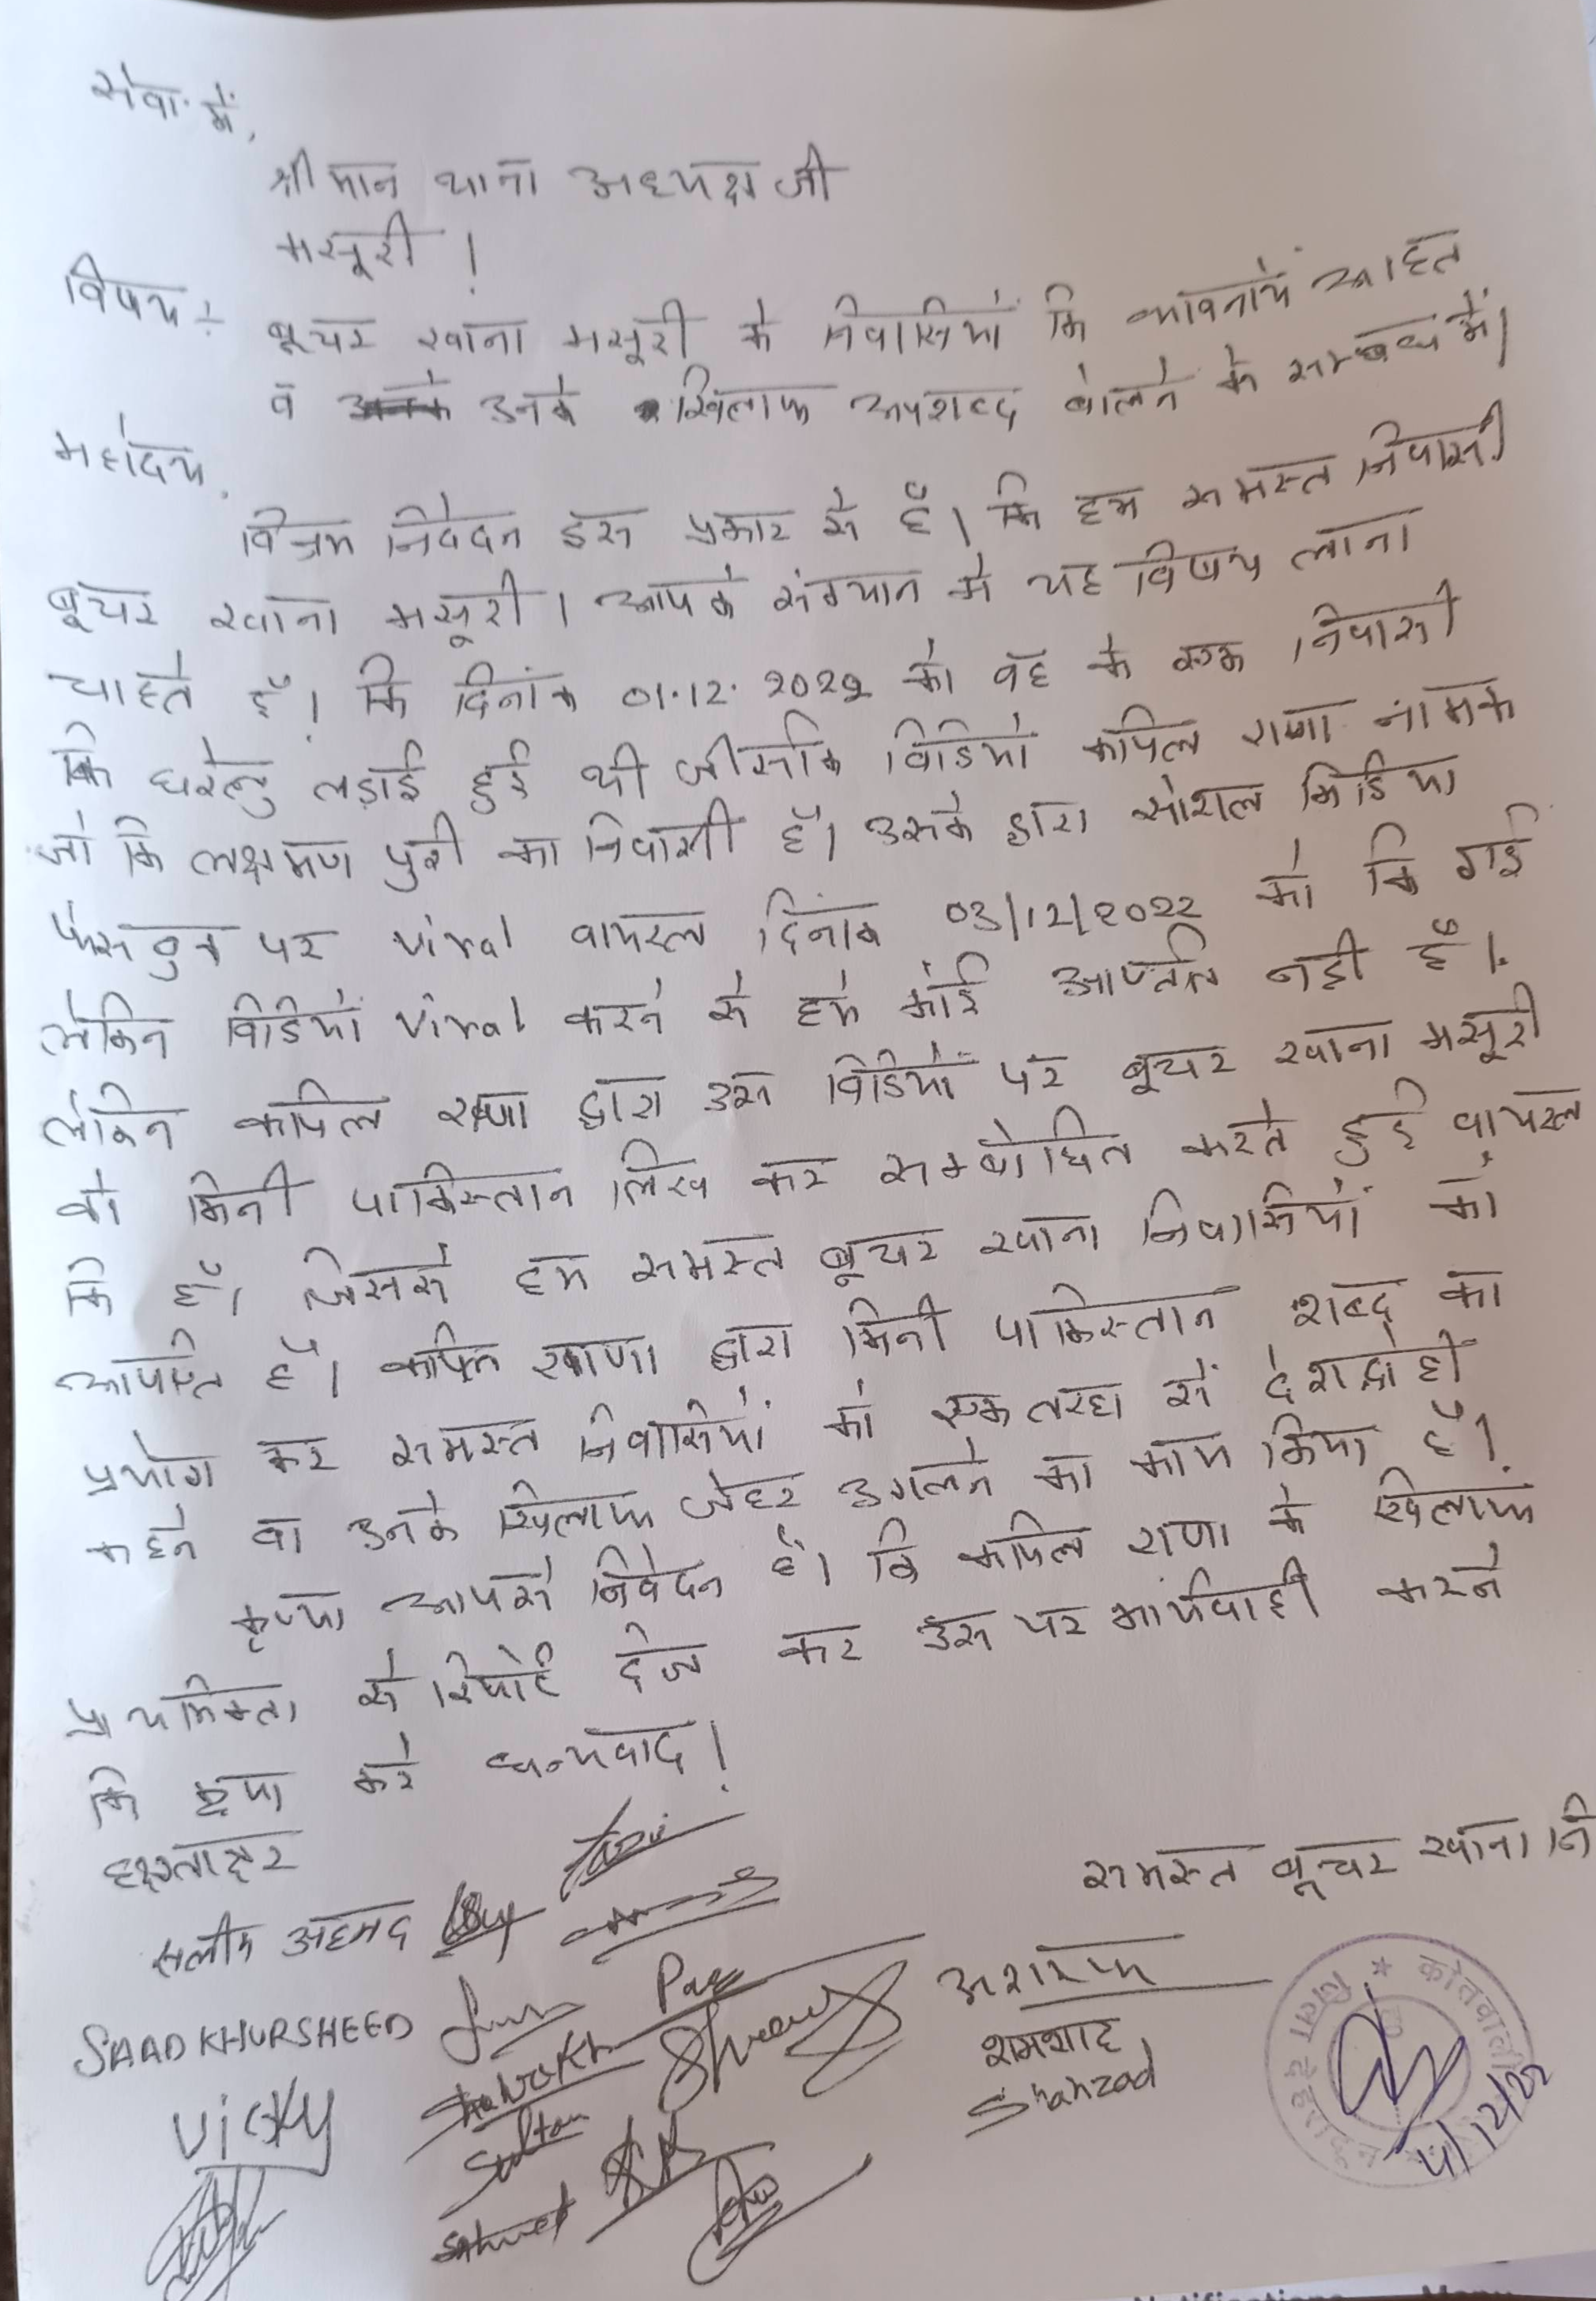 सेवा में,
श्रीमान थाना अध्यक्ष जी
मसूरी।
विषय :- बूचर खाना मसूरी के निवासियों कि भावनायें आहत
व उनके खिलाफ अपशब्द बोलने के सम्बंध में।
महोदय,
विन्रम निवेदन इस प्रकार से हैं। कि हम समस्त निवासी
बूचर खाना मसूरी। आपके संज्ञान में यह विषय लाना
चाहते हैं। कि दिनांक 01.12.2022 को वह के एक निवासी
कि घरेलु लड़ाई हुई थी जीसकि विडियो कपिल राणा नामक
जो कि लक्षमण पुरी का निवासी हैं। उसके द्वारा सोशल मिडिया
फेसबुक पर viral वायरल दिनांक 03/12/2022 को कि गई
लेकिन विडियों viral करने से हमे कोई आपत्ति नही हैं।
लेकिन कपिल राणा द्वारा उस विडियों पर बूचर खाना मसूरी
को मिनी पाकिस्तान लिख कर सम्बोधित करते हुई वायरल
कि हैं। जिससे हम समस्त बूचर खाना निवासियों को
आपत्ति हैं। कपिल राणा द्वारा मिनी पाकिस्तान शब्द का
प्रयोग कर समस्त निवासियों को एक तरहा से देशद्रोही
कहने वा उनके खिलाफ जेहर उगलने का काम किया हैं।
कृप्या आपसे निवेदन हैं। कि कपिल राणा के खिलाफ
प्राथमिकता से रिपोर्ट दर्ज कर उस पर कार्यवाही करने
कि कृपा करे धन्यवाद!
समस्त बूचर खाना नि
सलीम अहमद
अशरफ
SAAD KHURSHEED
शमशाद
Shahzad
Vicky
Shahrukh
Sultan
कोतवाली
जिला देहरादून
4/12/22